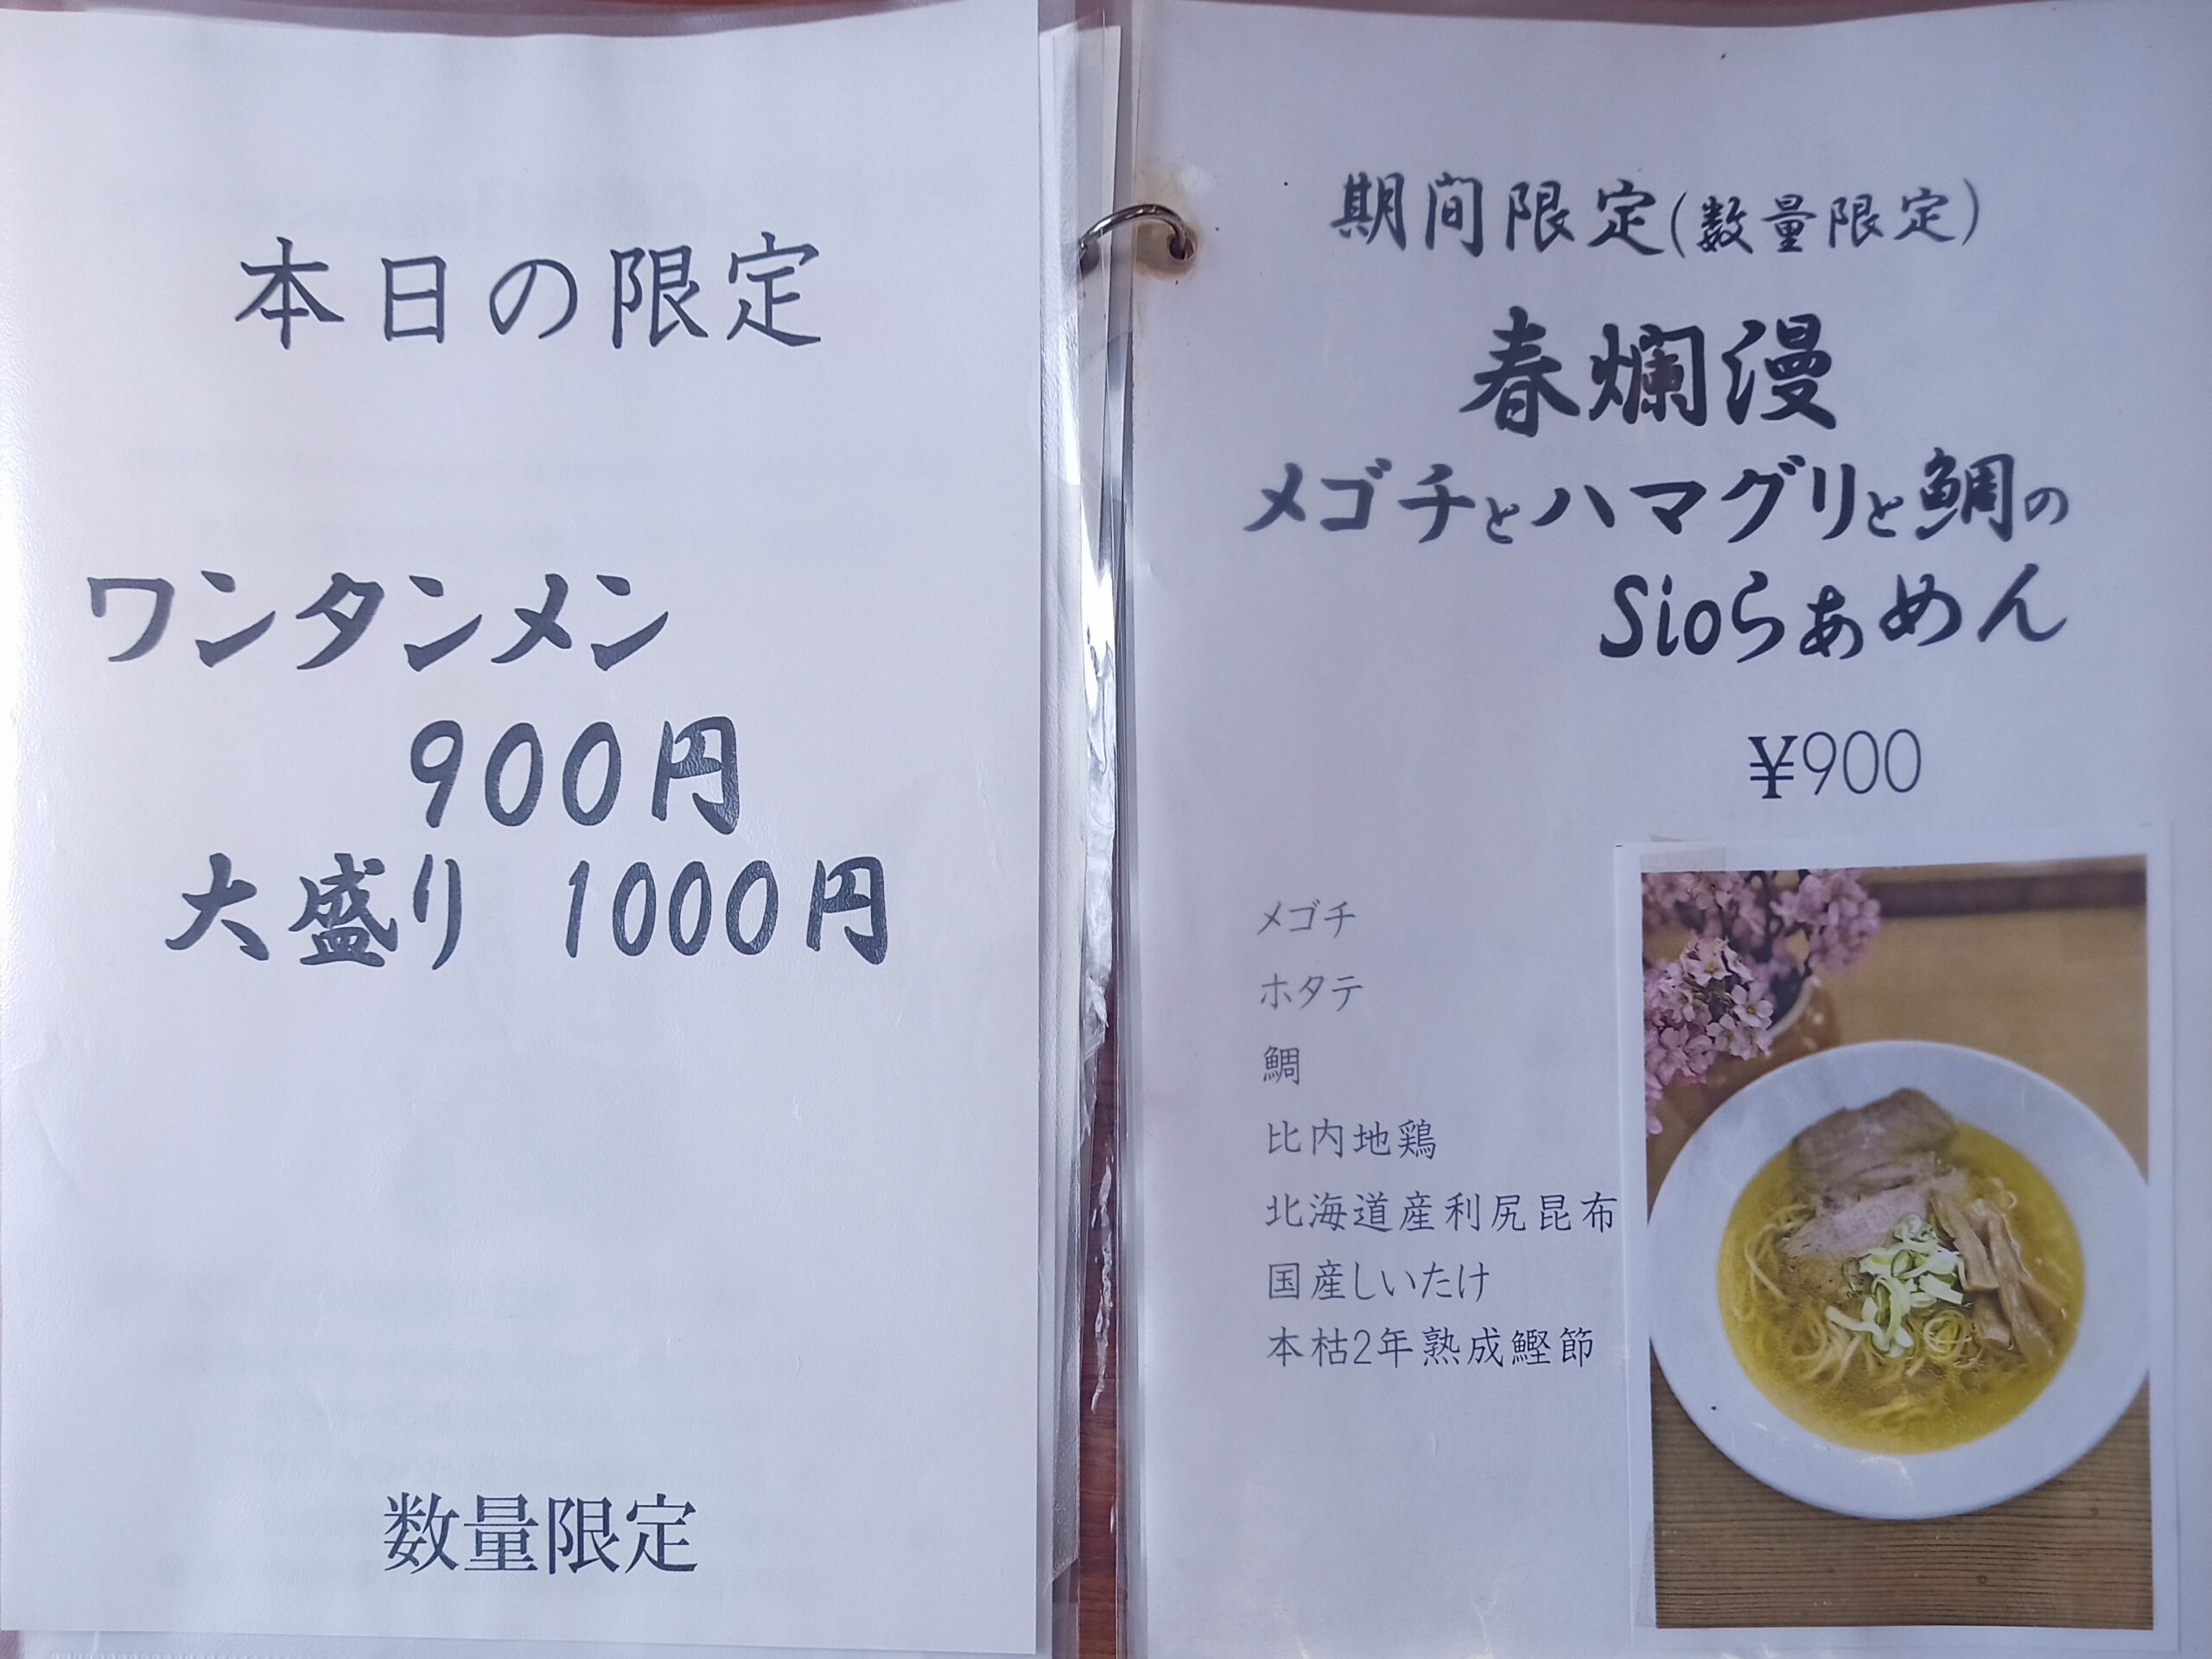 本日の限定
ワンタンメン
900円
大盛り 1000円
数量限定
期間限定(数量限定)
春爛漫
メゴチとハマグリと鯛の
Sioらぁめん
¥900
メゴチ
ホタテ
鯛
比内地鶏
北海道産利尻昆布
国産しいたけ
本枯2年熟成鰹節